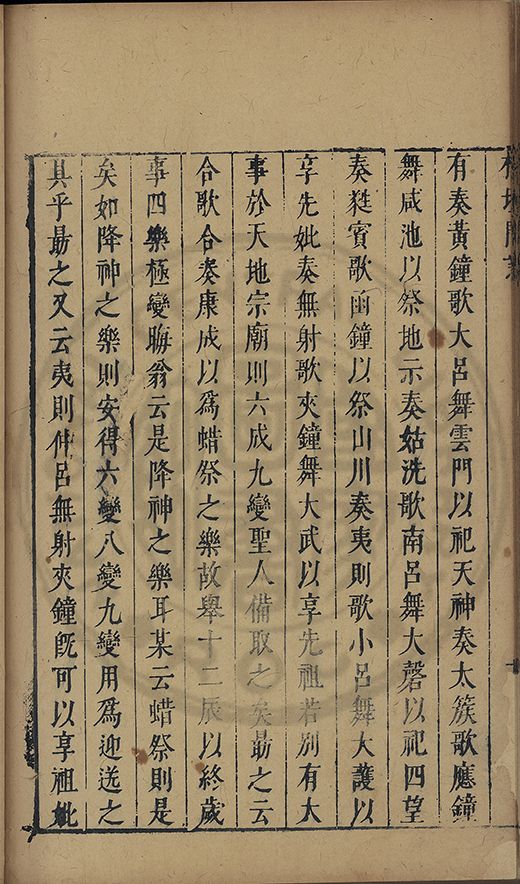 有奏黃鐘歌大呂舞雲門以祀天神奏太簇歌應鐘
舞咸池以祭地示奏姑洗歌南呂舞大磬以祀四望
奏蕤賓歌函鐘以祭山川奏夷則歌小呂舞大護以
享先妣奏無射歌夾鐘舞大武以享先祖若別有大
事於天地宗廟則六成九變聖人備取之矣勗之云
合歌合奏康成以爲蜡祭之樂故舉十二辰以終歲
事四樂極變晦翁云是降神之樂耳某云蜡祭則是
矣如降神之樂則安得六變八變九變用爲迎送之
具乎勗之又云夷則仲呂無射夾鐘旣可以享祖妣